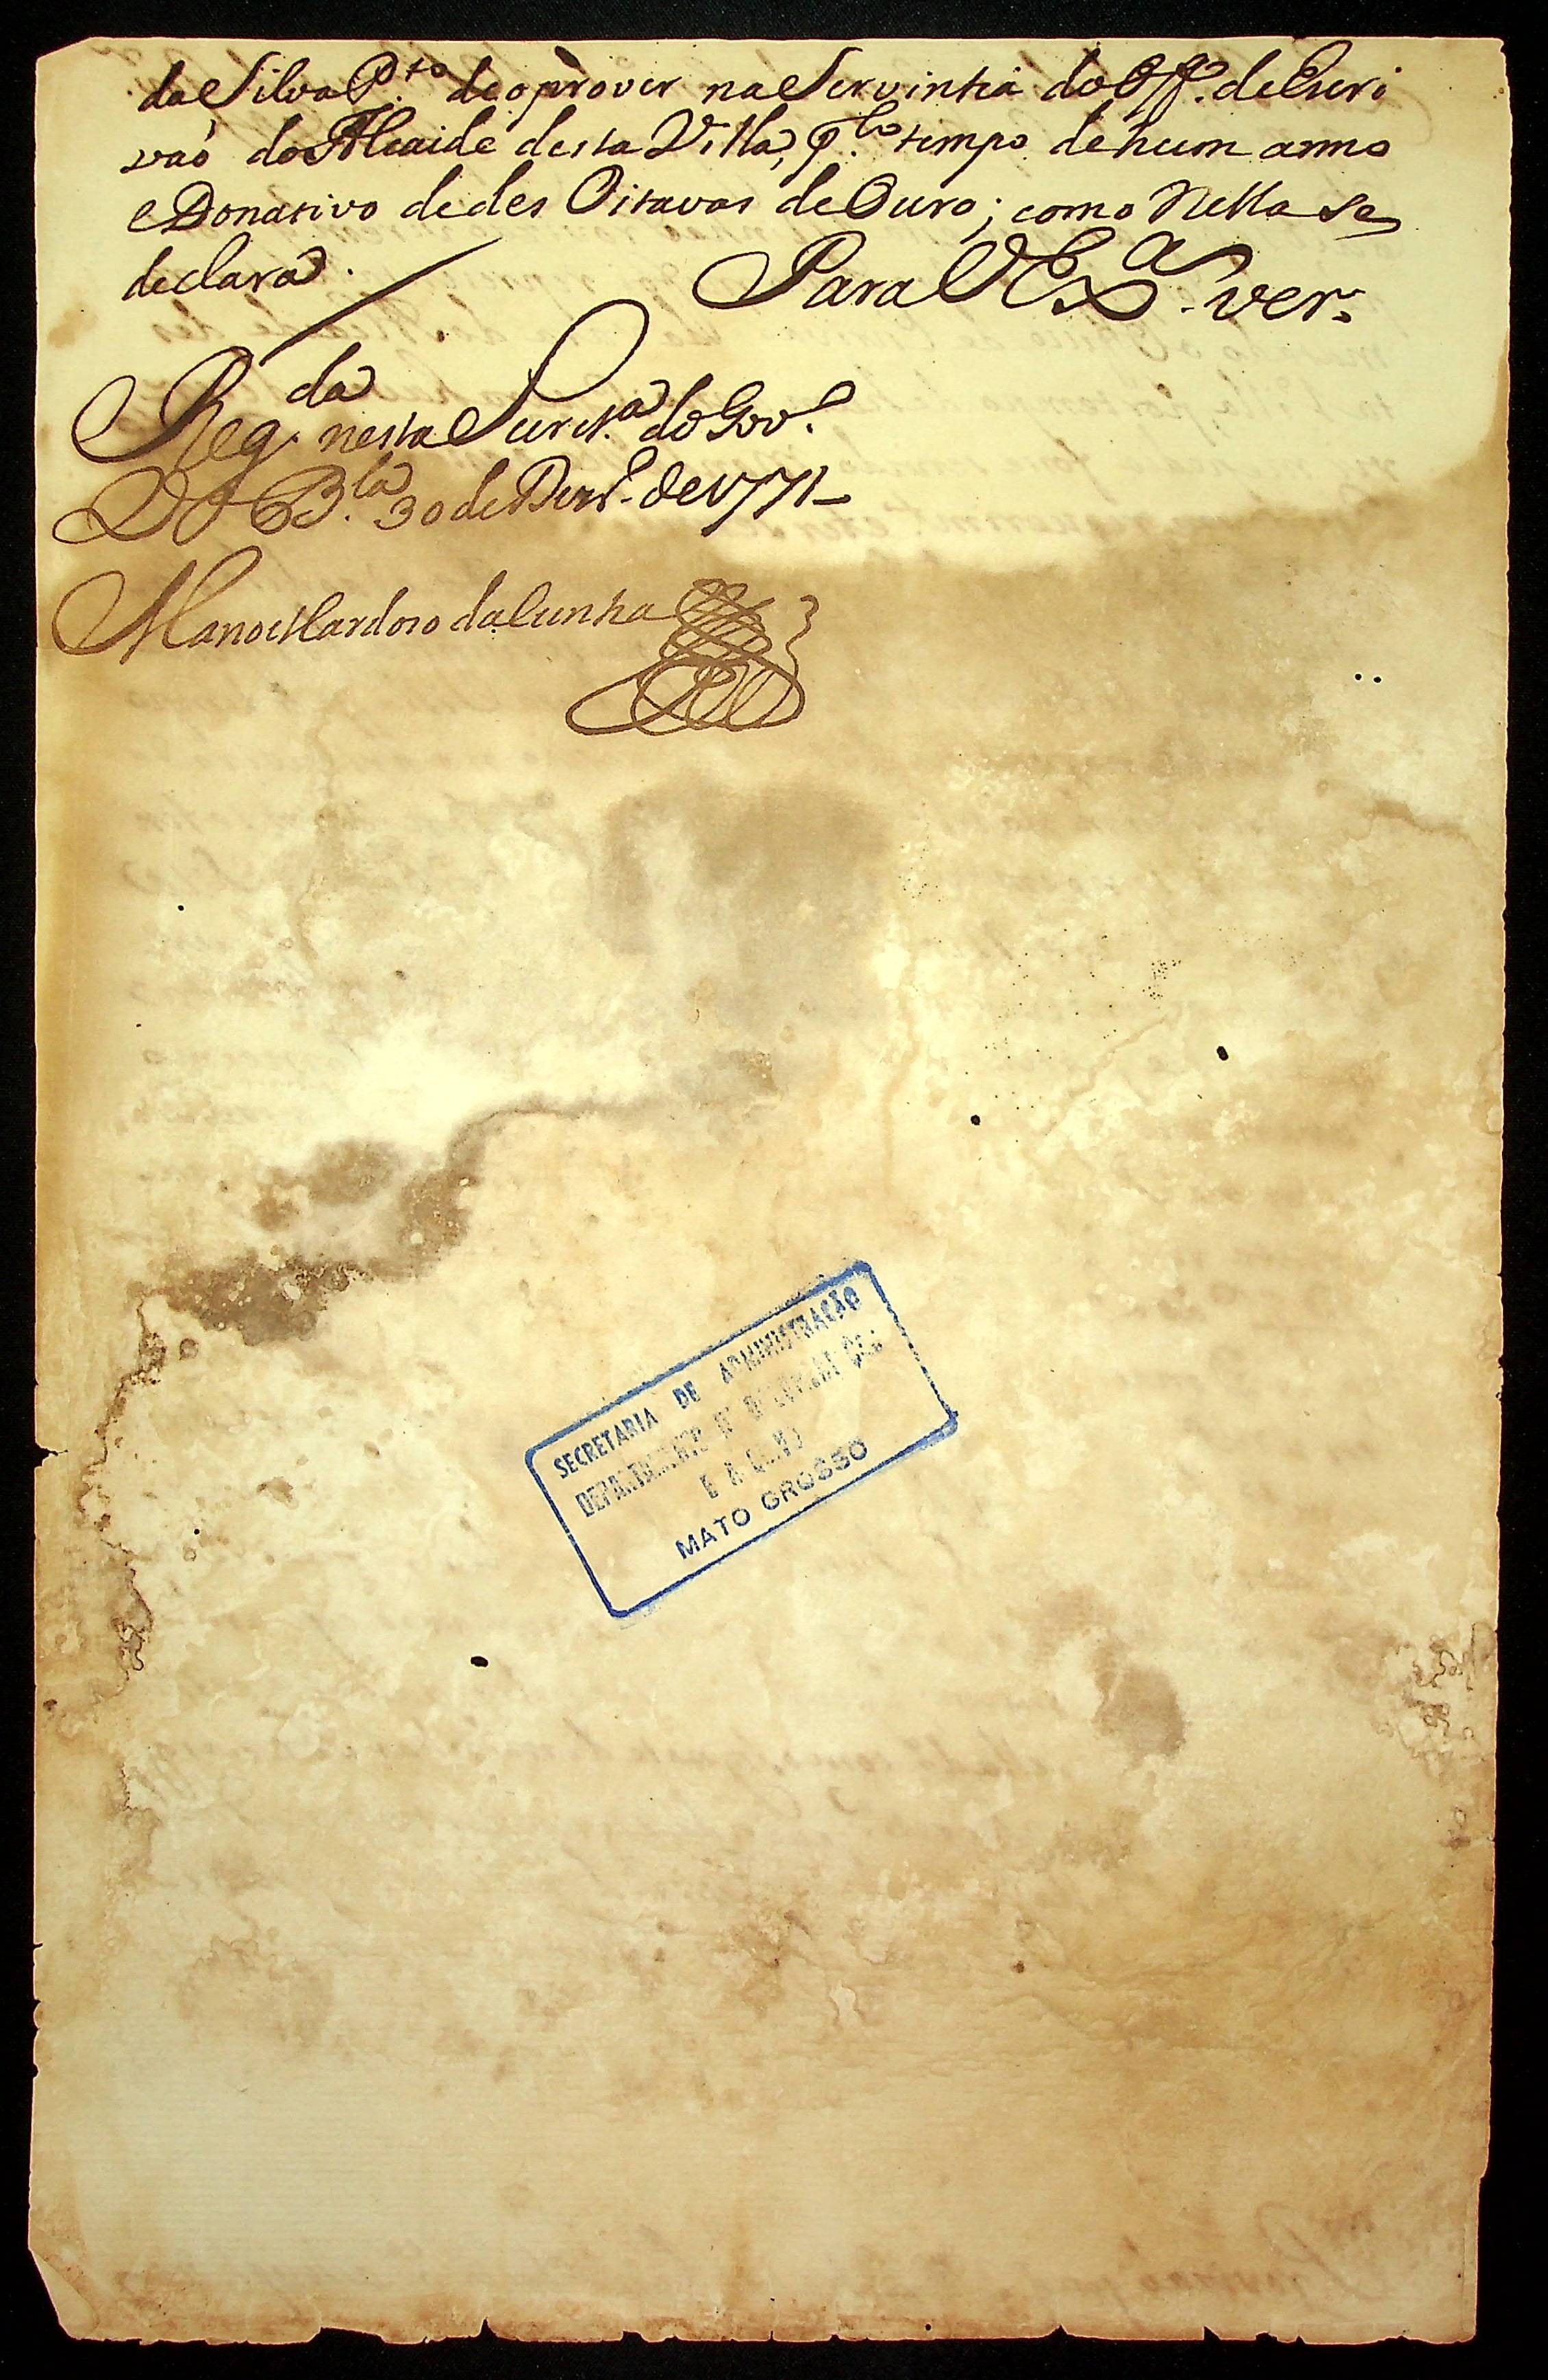 da Silva P.to de o prover na Serventia do Off.o de Escri
vaõ do Alcaide desta Villa, p.lo tempo de hum anno
e Donativo de des Oitavas de Ouro; como Nella se
declara.
Para V Ex.a ver.
Reg.da nesta Secret.a do Gov.o
de V.a B.la 30 de Dezr.o de 1771
Manoel Cardozo da Cunha
SECRETARIA DE ADMINISTRAÇÃO
DEPARTAMENTO DE
MATO GROSSO